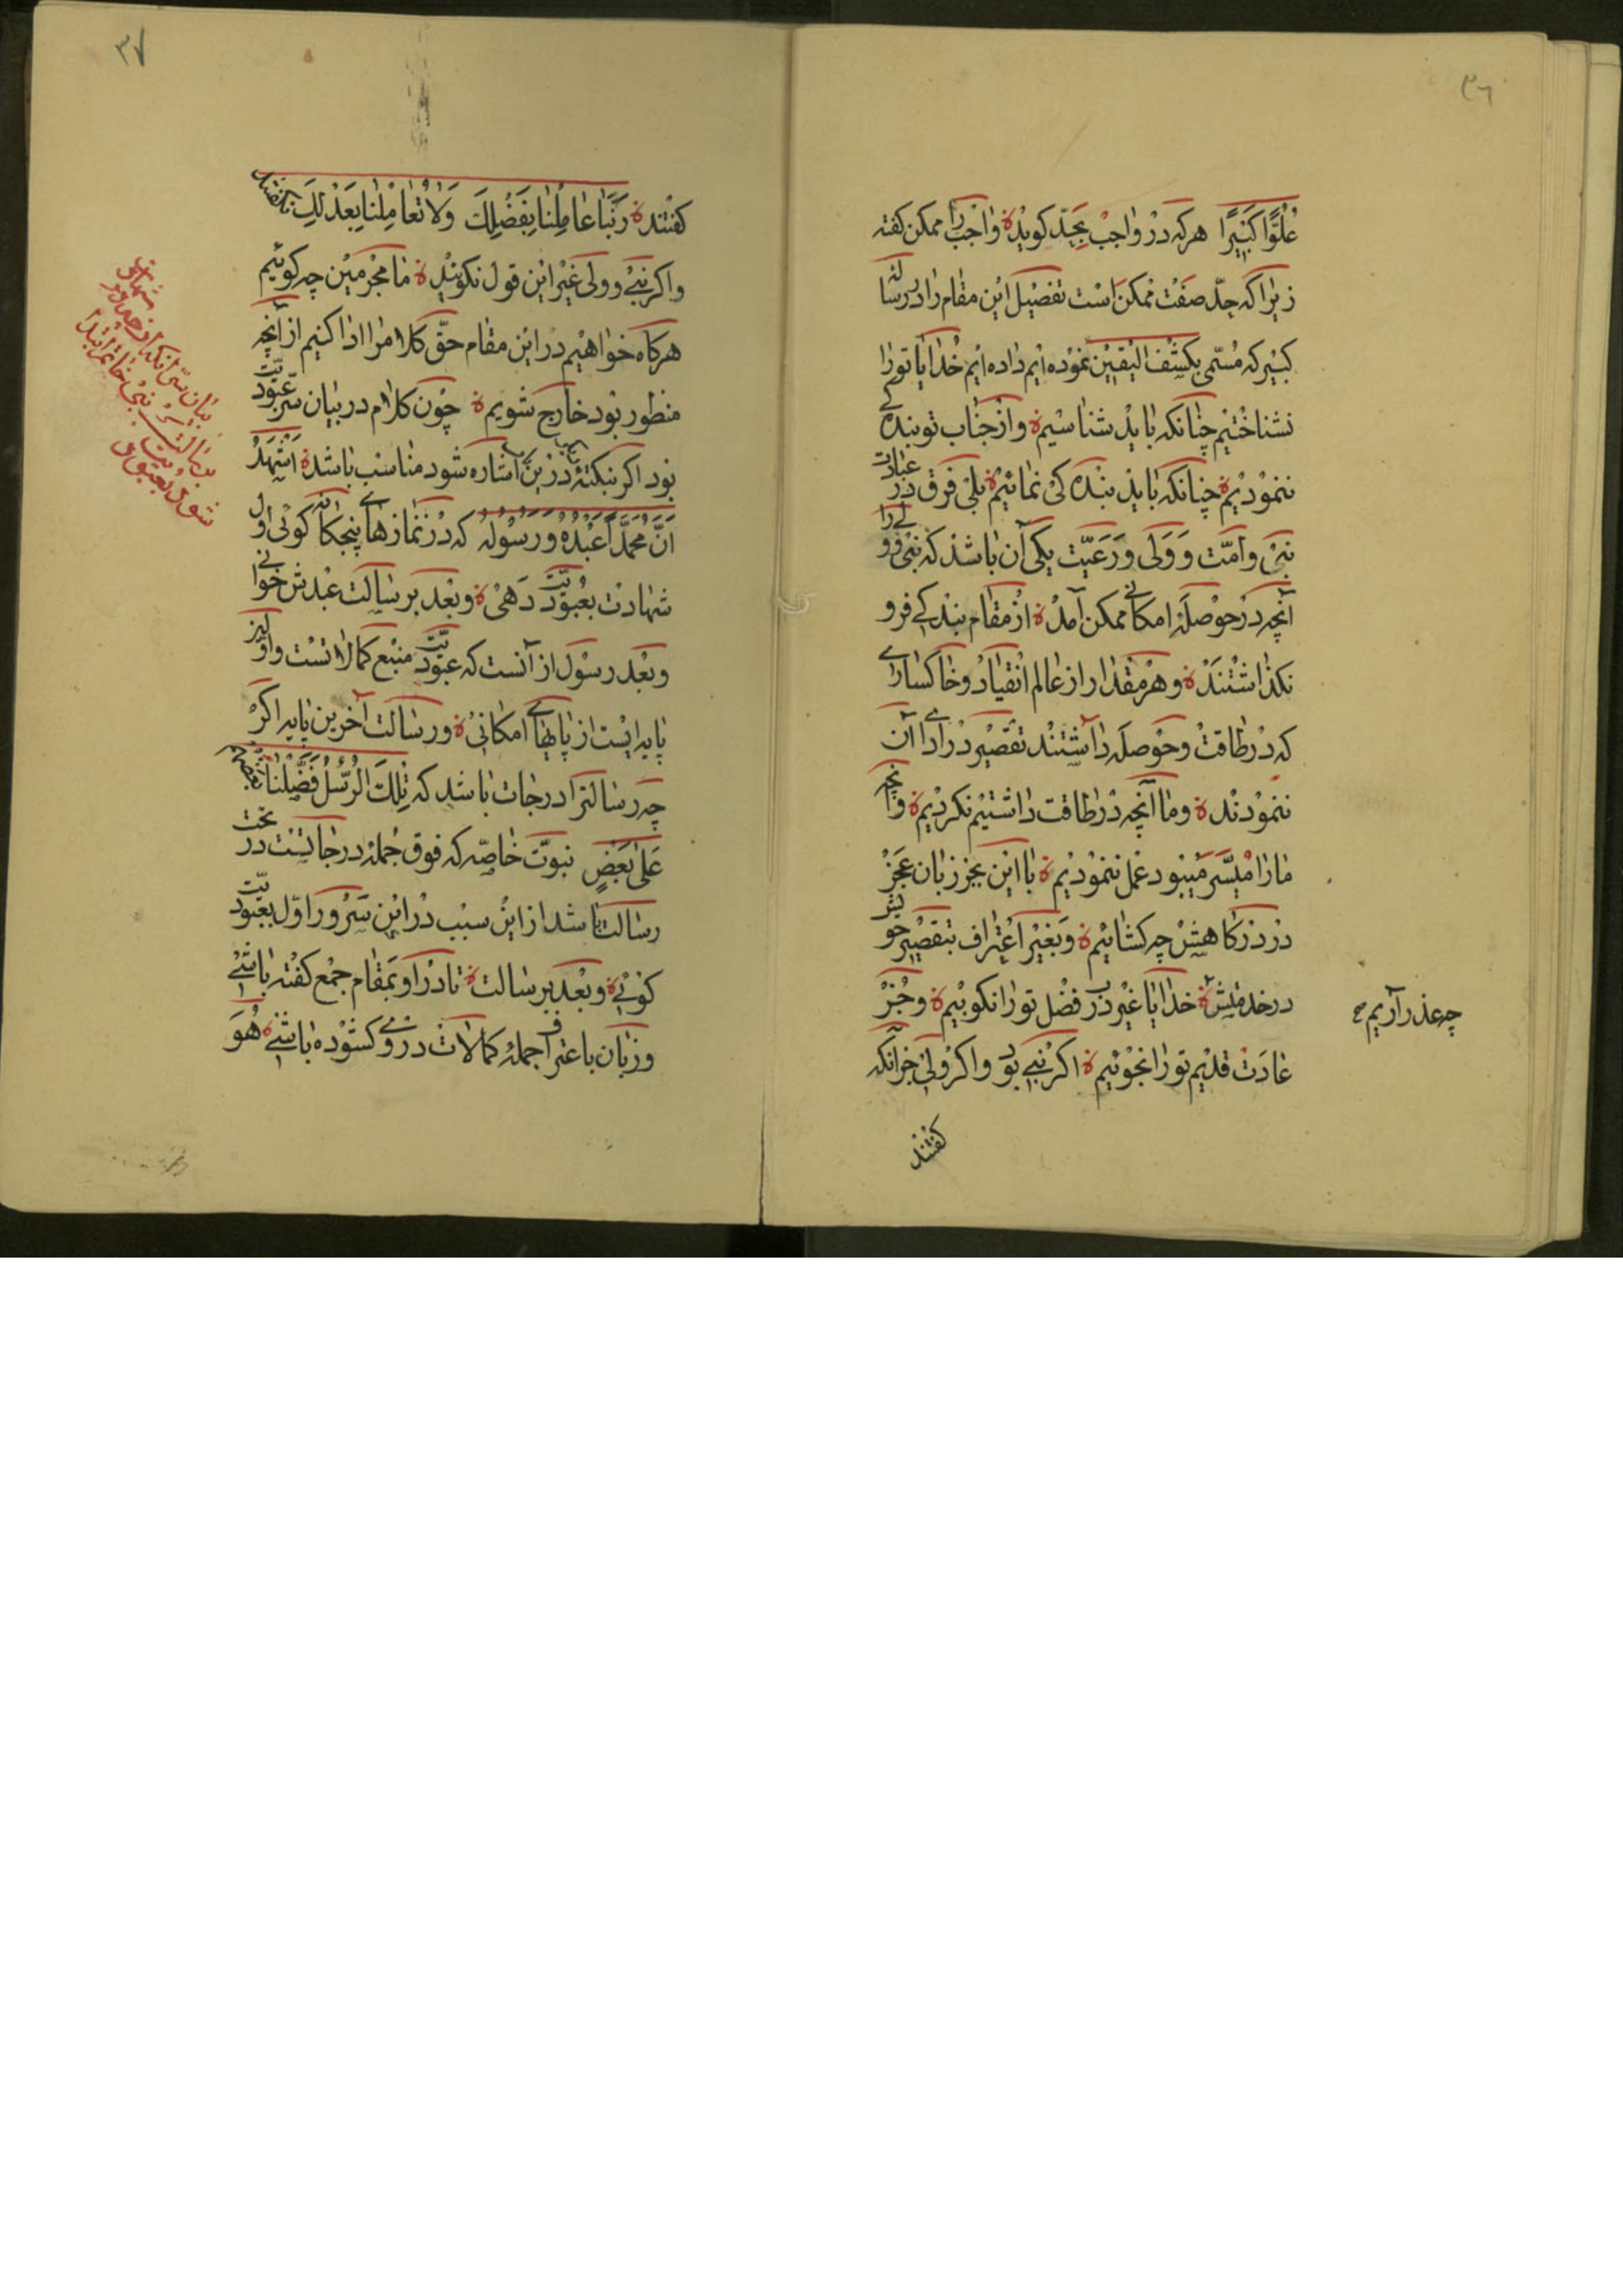 ٣٦
عُلُوًّا كَبيرًا هر که در واجب بجدّ کوید واجب را ممکن کفته
زیرا که جدّ صفت ممکن است تفصیل این مقام را در رساله
کبیر که مُسمّی بکشف الیقین نموده ایم داده ایم خدایا تو را
نشناختیم چنانکه باید شناسیم و از جناب تو بندکی
ننمودیم چنانکه باید بنده کی نمائیم بلی فرق در عبادت
نبی و امّت و ولی و رعیّت یکی آن باشد که نبی و ولی را
آنچه در حوصلهٔ امکانی ممکن آمد از مقام بندکی فرو
نکذاشتند و هر مقدار از عالم انقیاد و خاکساری
که در طاقت و حوصله داشتند تقصیر در ادای آن
ننمودند و ما آنچه در طاقت داشتیم نکردیم و آنچه
ما را میسّر میبود عمل ننمودیم با این عجز زبان عجز
در درکاهش چه کشائیم و بغیر اعتراف بتقصیر خویش
در خدمتش چه عذر آریم خدایا غیر در فضل تو را نکوبیم و جُز
عادت قدیم تو را نجوئیم اکر نبی بود و اکر ولی جز آنکه
کفتند
٣٧
کفتند رَبَّنا عامِلنا بِفَضلِكَ وَلا تُعامِلنا بِعَدلِكَ نکفتند
و اکر نبی و ولی غیر این قول نکویند ما مجرمین چه کوئیم
هر کاه خواهیم در این مقام حقّ کلام را ادا کنیم از آنچه
منظور بود خارج شویم چون کلام در بیان سرّ عبودیّت
بود اکر بنکتهٔ در این باب اشاره شود مناسب باشد اَشهَدُ
اَنَّ مُحَمَّداً عَبدُهُ وَ رَسُولُهُ که در نمازهای پنجکانه کوئی اول
شهادت بعبودیّت دهی و بعد برسالت عبدش خوانی
و بعد رسول از آنست که عبودیّت منبع کمالاتست و اولین
پایه ایست از پایهای امکانی و رسالت آخرین پایه اکر
چه رسالترا درجات باشد که تِلكَ الرُّسُلُ فَضَّلنا بَعضَهُم
عَلی بَعضٍ نبوّت خاصّه که فوق جُملهٔ درجاتست در تحت
رسالت باشد از این سبب در این سَرور اوّل بعبودیّت
کوئی و بعد برسالت تا در او بمقام جمع کفته باشی
و زبان باعتراف جملهٔ کمالات در وی کشوده باشی هُوَ